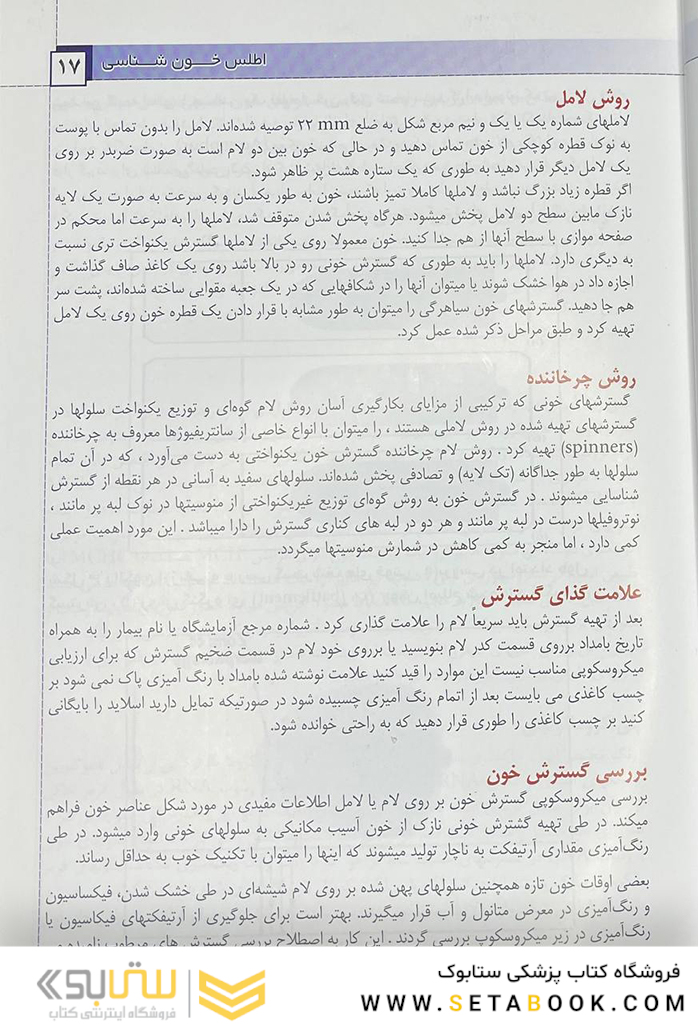 اطلس خـــون شنـــاسی
۱۷
روش لامل
لاملهای شماره یک یا یک و نیم مربع شکل به ضلع ۲۲ mm توصیه شده‌اند. لامل را بدون تماس با پوست
به نوک قطره کوچکی از خون تماس دهید و در حالی که خون بین دو لام است به صورت ضربدر بر روی
یک لامل دیگر قرار دهید به طوری که یک ستاره هشت پر ظاهر شود.
اگر قطره زیاد بزرگ نباشد و لاملها کاملا تمیز باشند، خون به طور یکسان و به سرعت به صورت یک لایه
نازک مابین سطح دو لامل پخش میشود. هرگاه پخش شدن متوقف شد، لاملها را به سرعت اما محکم در
صفحه موازی با سطح آنها از هم جدا کنید. خون معمولا روی یکی از لاملها گسترش یکنواخت تری نسبت
به دیگری دارد. لاملها را باید به طوری که گسترش خونی رو در بالا باشد روی یک کاغذ صاف گذاشت و
اجازه داد در هوا خشک شوند یا میتوان آنها را در شکافهایی که در یک جعبه مقوایی ساخته شده‌اند، پشت سر
هم جا دهید. گسترشهای خون سیاهرگی را میتوان به طور مشابه با قرار دادن یک قطره خون روی یک لامل
تهیه کرد و طبق مراحل ذکر شده عمل کرد.
روش چرخاننده
گسترشهای خونی که ترکیبی از مزایای بکارگیری آسان روش لام گوه‌ای و توزیع یکنواخت سلولها در
گسترشهای تهیه شده در روش لاملی هستند ، را میتوان با انواع خاصی از سانتریفیوژها معروف به چرخاننده
(spinners) تهیه کرد . روش لام چرخاننده گسترش خون یکنواختی به دست می‌آورد ، که در آن تمام
سلولها به طور جداگانه (تک لایه) و تصادفی پخش شده‌اند. سلولهای سفید به آسانی در هر نقطه از گسترش
شناسایی میشوند . در گسترش خون به روش گوه‌ای توزیع غیریکنواختی از منوسیتها در نوک لبه پر مانند ،
نوتروفیلها درست در لبه پر مانند و هر دو در لبه های کناری گسترش را دارا میباشد . این مورد اهمیت عملی
کمی دارد ، اما منجر به کمی کاهش در شمارش منوسیتها میگردد.
علامت گذای گسترش
بعد از تهیه گسترش باید سریعاً لام را علامت گذاری کرد . شماره مرجع آزمایشگاه یا نام بیمار را به همراه
تاریخ بامداد برروی قسمت کدر لام بنویسید یا برروی خود لام در قسمت ضخیم گسترش که برای ارزیابی
میکروسکوپی مناسب نیست این موارد را قید کنید علامت نوشته شده بامداد با رنگ آمیزی پاک نمی شود بر
چسب کاغذی می بایست بعد از اتمام رنگ آمیزی چسبیده شود در صورتیکه تمایل دارید اسلاید را بایگانی
کنید بر چسب کاغذی را طوری قرار دهید که به راحتی خوانده شود.
بررسی گسترش خون
بررسی میکروسکوپی گسترش خون بر روی لام یا لامل اطلاعات مفیدی در مورد شکل عناصر خون فراهم
میکند. در طی تهیه گشترش خونی نازک از خون آسیب مکانیکی به سلولهای خونی وارد میشود. در طی
رنگ‌آمیزی مقداری آرتیفکت به ناچار تولید میشوند که اینها را میتوان با تکنیک خوب به حداقل رساند.
بعضی اوقات خون تازه همچنین سلولهای پهن شده بر روی لام شیشه‌ای در طی خشک شدن، فیکساسیون
و رنگ‌آمیزی در معرض متانول و آب قرار میگیرند. بهتر است برای جلوگیری از آرتیفکتهای فیکاسیون یا
رنگ‌آمیزی در زیر میکروسکوپ بررسی گردند . این کار به اصطلاح بررسی گسترش های مرطوب نامیده
فروشگاه کتاب پزشکی ستابوک
WWW.SETABOOK.COM
ستابوک
فروشگاه اینترنتی کتاب